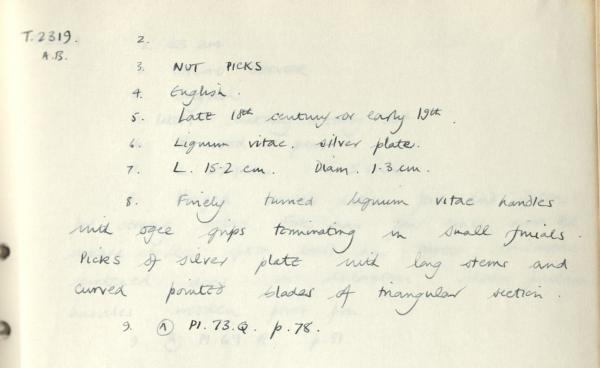 T.2319.
A.B.
2.
3. NUT PICKS
4. English.
5. Late 18th century or early 19th.
6. Lignum vitae. silver plate.
7. L. 15.2 cm. Diam. 1.3 cm.
8. Finely turned lignum vitae handles
with ogee grips terminating in small finials.
Picks of silver plate with long stems and
curved pointed blades of triangular section.
9. Ⓐ Pl. 73.Q. p.78.